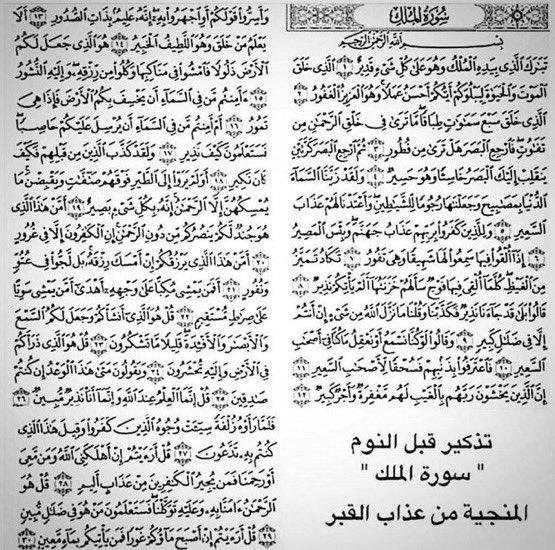 سُورَةُ المُلْكِ
بِسْمِ ٱللَّهِ ٱلرَّحْمَٰنِ ٱلرَّحِيمِ
تَبَٰرَكَ ٱلَّذِى بِيَدِهِ ٱلْمُلْكُ وَهُوَ عَلَىٰ كُلِّ شَىْءٍ قَدِيرٌ ١ ٱلَّذِى خَلَقَ
ٱلْمَوْتَ وَٱلْحَيَوٰةَ لِيَبْلُوَكُمْ أَيُّكُمْ أَحْسَنُ عَمَلًا وَهُوَ ٱلْعَزِيزُ ٱلْغَفُورُ ٢
ٱلَّذِى خَلَقَ سَبْعَ سَمَٰوَٰتٍ طِبَاقًا مَّا تَرَىٰ فِى خَلْقِ ٱلرَّحْمَٰنِ مِن
تَفَٰوُتٍ فَٱرْجِعِ ٱلْبَصَرَ هَلْ تَرَىٰ مِن فُطُورٍ ٣ ثُمَّ ٱرْجِعِ ٱلْبَصَرَ كَرَّتَيْنِ
يَنقَلِبْ إِلَيْكَ ٱلْبَصَرُ خَاسِئًا وَهُوَ حَسِيرٌ ٤ وَلَقَدْ زَيَّنَّا ٱلسَّمَآءَ
ٱلدُّنْيَا بِمَصَٰبِيحَ وَجَعَلْنَٰهَا رُجُومًا لِّلشَّيَٰطِينِ وَأَعْتَدْنَا لَهُمْ عَذَابَ
ٱلسَّعِيرِ ٥ وَلِلَّذِينَ كَفَرُوا۟ بِرَبِّهِمْ عَذَابُ جَهَنَّمَ وَبِئْسَ ٱلْمَصِيرُ
٦ إِذَآ أُلْقُوا۟ فِيهَا سَمِعُوا۟ لَهَا شَهِيقًا وَهِىَ تَفُورُ ٧ تَكَادُ تَمَيَّزُ
مِنَ ٱلْغَيْظِ كُلَّمَآ أُلْقِىَ فِيهَا فَوْجٌ سَأَلَهُمْ خَزَنَتُهَآ أَلَمْ يَأْتِكُمْ نَذِيرٌ ٨
قَالُوا۟ بَلَىٰ قَدْ جَآءَنَا نَذِيرٌ فَكَذَّبْنَا وَقُلْنَا مَا نَزَّلَ ٱللَّهُ مِن شَىْءٍ إِنْ أَنتُمْ
إِلَّا فِى ضَلَٰلٍ كَبِيرٍ ٩ وَقَالُوا۟ لَوْ كُنَّا نَسْمَعُ أَوْ نَعْقِلُ مَا كُنَّا فِىٓ أَصْحَٰبِ
ٱلسَّعِيرِ ١٠ فَٱعْتَرَفُوا۟ بِذَنۢبِهِمْ فَسُحْقًا لِّأَصْحَٰبِ ٱلسَّعِيرِ ١١
إِنَّ ٱلَّذِينَ يَخْشَوْنَ رَبَّهُم بِٱلْغَيْبِ لَهُم مَّغْفِرَةٌ وَأَجْرٌ كَبِيرٌ ١٢
تذكير قبل النوم
" سورة الملك "
المنجية من عذاب القبر
وَأَسِرُّوا۟ قَوْلَكُمْ أَوِ ٱجْهَرُوا۟ بِهِۦٓ إِنَّهُۥ عَلِيمٌۢ بِذَاتِ ٱلصُّدُورِ ١٣ أَلَا
يَعْلَمُ مَنْ خَلَقَ وَهُوَ ٱللَّطِيفُ ٱلْخَبِيرُ ١٤ هُوَ ٱلَّذِى جَعَلَ لَكُمُ
ٱلْأَرْضَ ذَلُولًا فَٱمْشُوا۟ فِى مَنَاكِبِهَا وَكُلُوا۟ مِن رِّزْقِهِۦ وَإِلَيْهِ ٱلنُّشُورُ
١٥ ءَأَمِنتُم مَّن فِى ٱلسَّمَآءِ أَن يَخْسِفَ بِكُمُ ٱلْأَرْضَ فَإِذَا هِىَ
تَمُورُ ١٦ أَمْ أَمِنتُم مَّن فِى ٱلسَّمَآءِ أَن يُرْسِلَ عَلَيْكُمْ حَاصِبًا
فَسَتَعْلَمُونَ كَيْفَ نَذِيرِ ١٧ وَلَقَدْ كَذَّبَ ٱلَّذِينَ مِن قَبْلِهِمْ فَكَيْفَ
كَانَ نَكِيرِ ١٨ أَوَلَمْ يَرَوْا۟ إِلَى ٱلطَّيْرِ فَوْقَهُمْ صَٰٓفَّٰتٍ وَيَقْبِضْنَ مَا
يُمْسِكُهُنَّ إِلَّا ٱلرَّحْمَٰنُ إِنَّهُۥ بِكُلِّ شَىْءٍۭ بَصِيرٌ ١٩ أَمَّنْ هَٰذَا ٱلَّذِى
هُوَ جُندٌ لَّكُمْ يَنصُرُكُم مِّن دُونِ ٱلرَّحْمَٰنِ إِنِ ٱلْكَٰفِرُونَ إِلَّا فِى غُرُورٍ
٢٠ أَمَّنْ هَٰذَا ٱلَّذِى يَرْزُقُكُمْ إِنْ أَمْسَكَ رِزْقَهُۥ بَل لَّجُّوا۟ فِى عُتُوٍّ
وَنُفُورٍ ٢١ أَفَمَن يَمْشِى مُكِبًّا عَلَىٰ وَجْهِهِۦٓ أَهْدَىٰٓ أَمَّن يَمْشِى سَوِيًّا
عَلَىٰ صِرَٰطٍ مُّسْتَقِيمٍ ٢٢ قُلْ هُوَ ٱلَّذِىٓ أَنشَأَكُمْ وَجَعَلَ لَكُمُ ٱلسَّمْعَ
وَٱلْأَبْصَٰرَ وَٱلْأَفْـِٔدَةَ قَلِيلًا مَّا تَشْكُرُونَ ٢٣ قُلْ هُوَ ٱلَّذِى ذَرَأَكُمْ
فِى ٱلْأَرْضِ وَإِلَيْهِ تُحْشَرُونَ ٢٤ وَيَقُولُونَ مَتَىٰ هَٰذَا ٱلْوَعْدُ إِن كُنتُمْ
صَٰدِقِينَ ٢٥ قُلْ إِنَّمَا ٱلْعِلْمُ عِندَ ٱللَّهِ وَإِنَّمَآ أَنَا۠ نَذِيرٌ مُّبِينٌ ٢٦
فَلَمَّا رَأَوْهُ زُلْفَةً سِيٓـَٔتْ وُجُوهُ ٱلَّذِينَ كَفَرُوا۟ وَقِيلَ هَٰذَا ٱلَّذِى
كُنتُم بِهِۦ تَدَّعُونَ ٢٧ قُلْ أَرَءَيْتُمْ إِنْ أَهْلَكَنِىَ ٱللَّهُ وَمَن مَّعِىَ
أَوْ رَحِمَنَا فَمَن يُجِيرُ ٱلْكَٰفِرِينَ مِنْ عَذَابٍ أَلِيمٍ ٢٨ قُلْ هُوَ
ٱلرَّحْمَٰنُ ءَامَنَّا بِهِۦ وَعَلَيْهِ تَوَكَّلْنَا فَسَتَعْلَمُونَ مَنْ هُوَ فِى ضَلَٰلٍ مُّبِينٍ
٢٩ قُلْ أَرَءَيْتُمْ إِنْ أَصْبَحَ مَآؤُكُمْ غَوْرًا فَمَن يَأْتِيكُم بِمَآءٍ مَّعِينٍۭ ٣٠